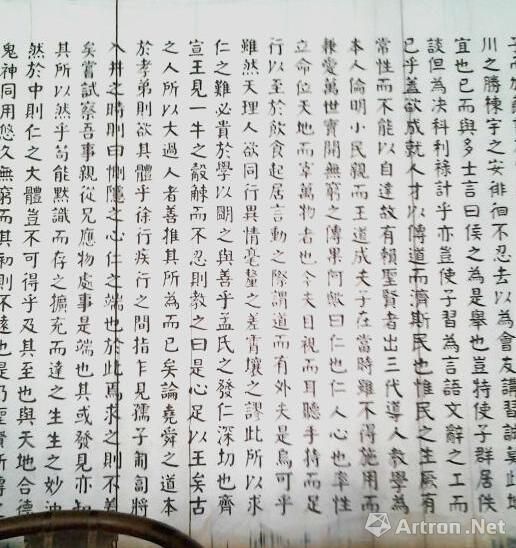 川之勝棟宇之安徘徊不忍去以為會友講習誠莫此地
宜也已而與多士言曰侯之為是舉也豈特使子群居佚
談但為决科利祿計乎亦豈使子習為言語文辭之工而
已乎蓋欲成就人才以傳道而濟斯民也惟民之生厥有
常性而不能以自達故有賴聖賢者出三代導人教學為
本人倫明小民親而王道成夫子在當時雖不得施用而
兼愛萬世實開無窮之傳果何歟曰仁也仁人心也率性
立命位天地而宰萬物者也今夫目視而耳聽手持而足
行以至於飲食起居言動之際謂道而有外夫是烏可乎
雖然天理人欲同行異情毫釐之差霄壤之謬此所以求
仁之難必貴於學以明之與善乎孟氏之發仁深切也齊
宣王見一牛之觳觫而不忍則教之曰是心足以王矣古
之人所以大過人者善推其所為而已矣論堯舜之道本
於孝弟則欲其體乎徐行疾行之間指乍見孺子匍匐將
入井之時則曰惻隱之心仁之端也於此焉求之則不差
矣嘗試察吾事親從兄應物處事是端也其或發見亦知
其所以然乎苟能默識而存之擴充而達之生生之妙油
然於中則仁之大體豈不可得乎及其至也與天地合德
鬼神同用悠久無窮而其初則不遠也是乃聖賢所傳
Artron.Net